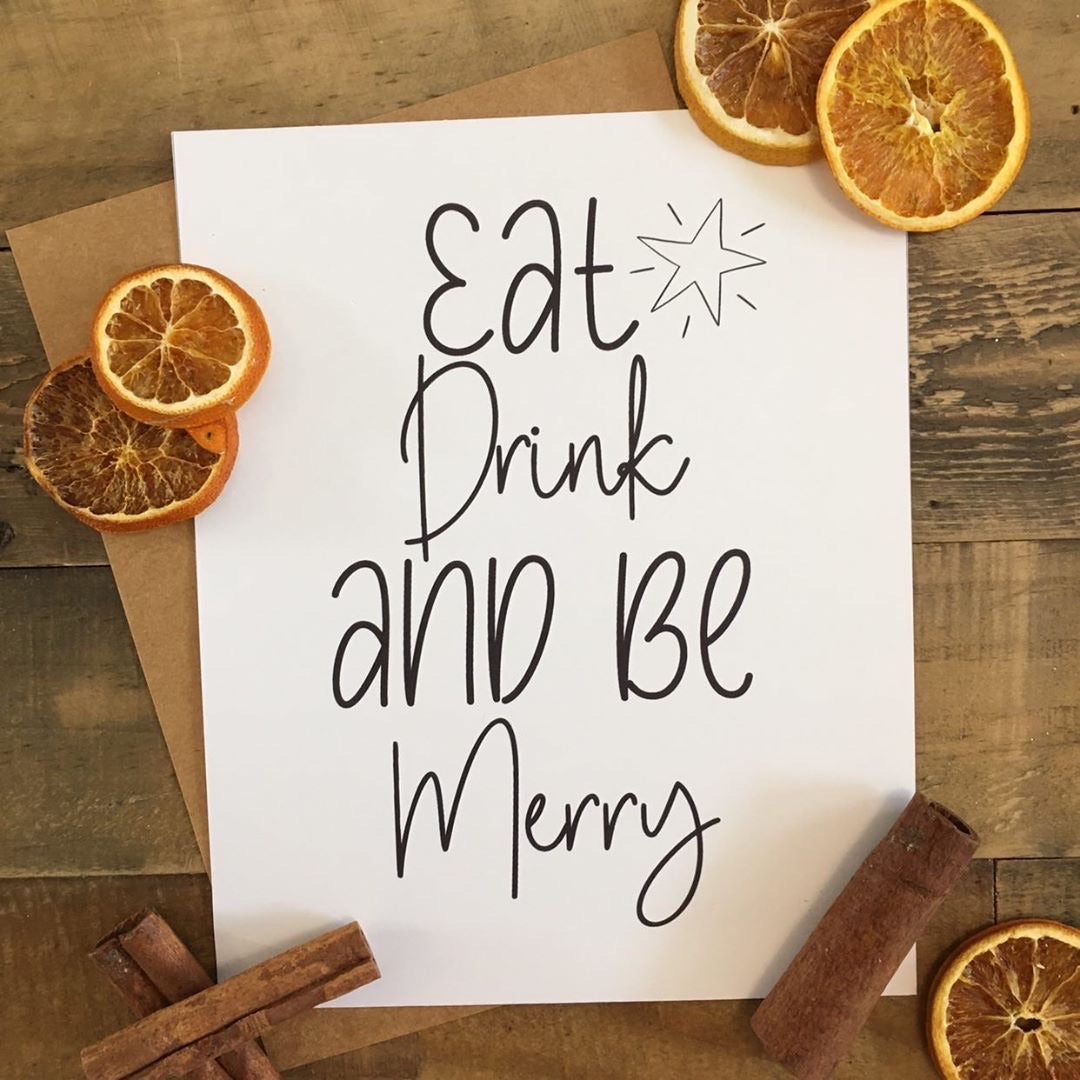 Eat
Drink
AND Be
Merry